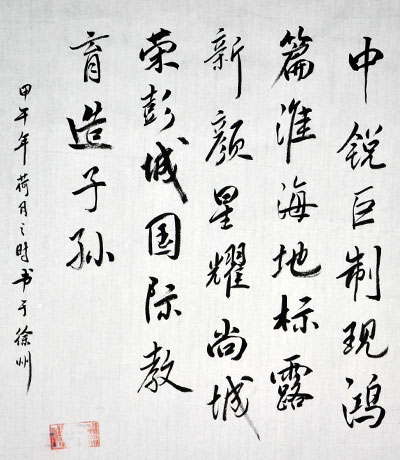 中锐巨制现鸿
篇淮海地标露
新颜星耀尚城
荣彭城国际教
育造子孙
甲午年荷月之时书于徐州